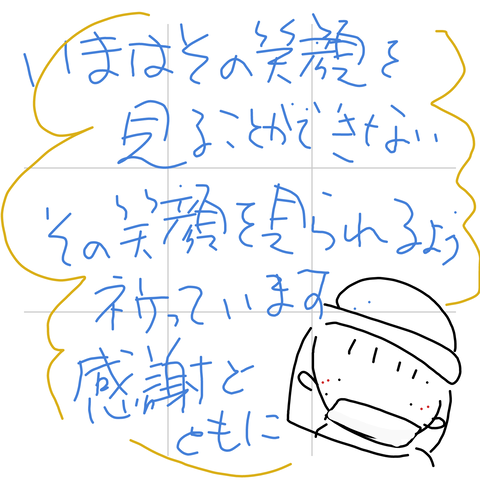 いまはその笑顔を
見ることができない
その笑顔を見られるよう
祈っています
感謝と
ともに